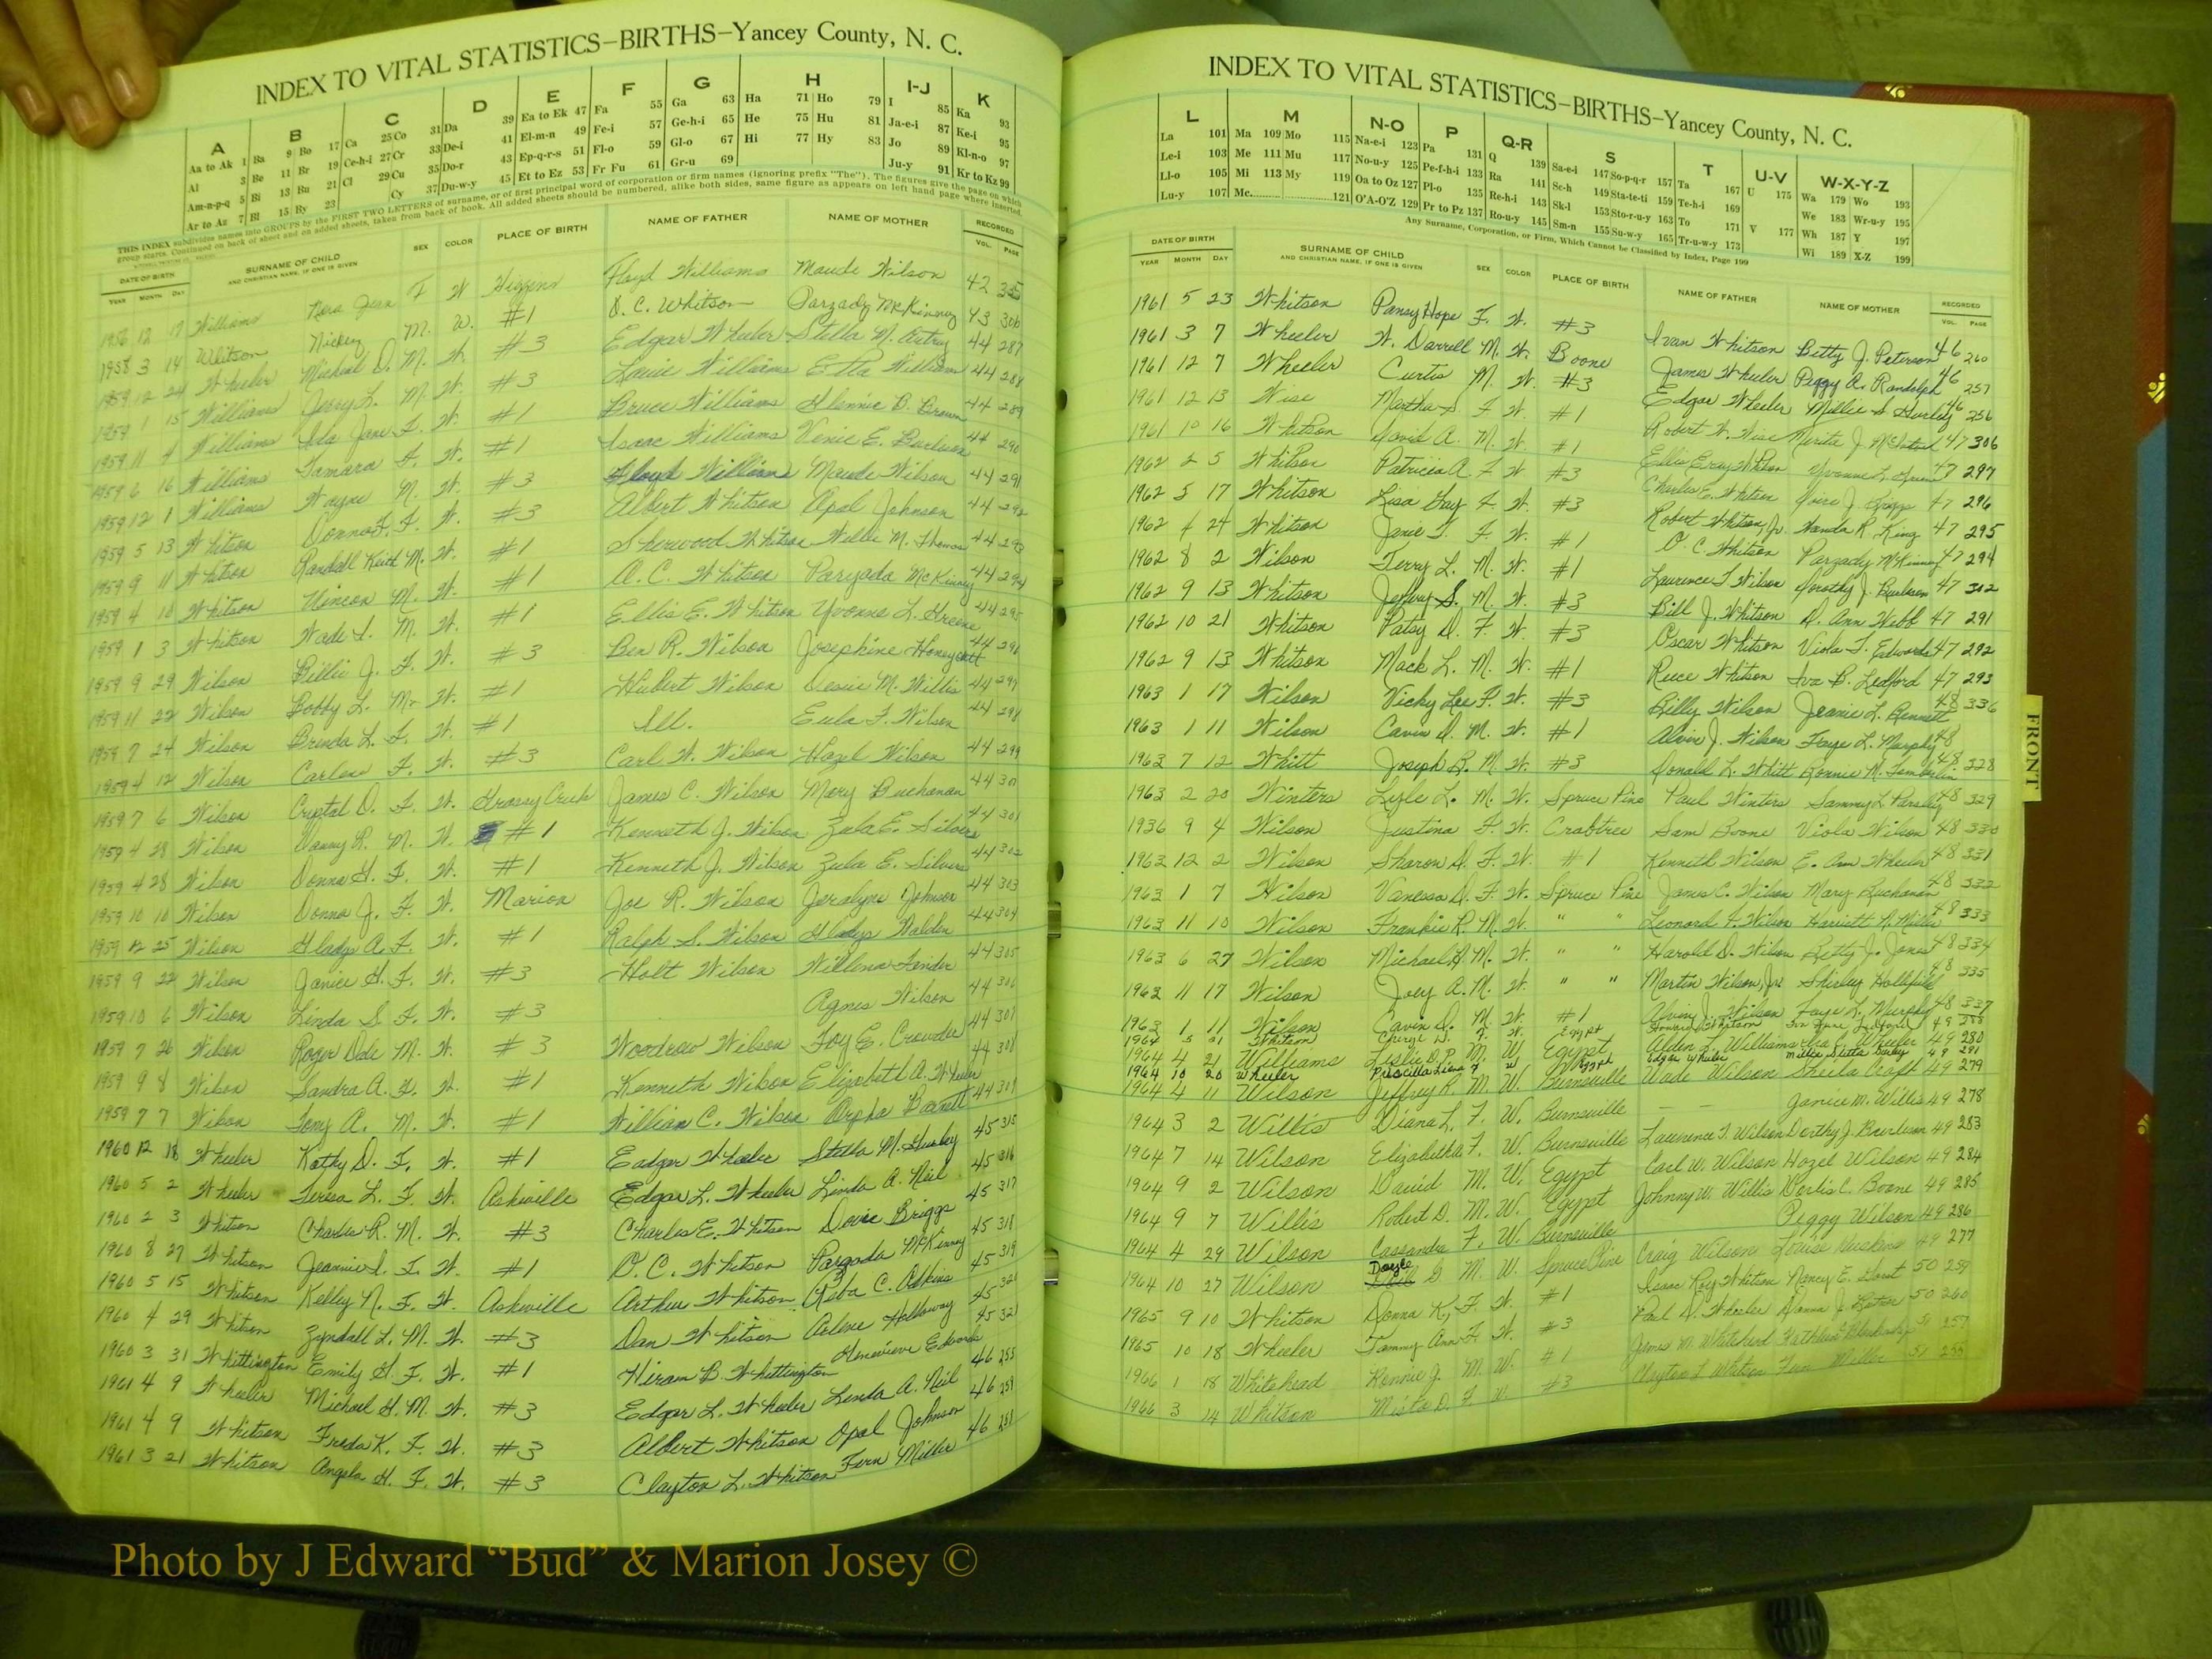 INDEX TO VITAL STATISTICS–BIRTHS–Yancey County, N. C.
A B C D E F G H I-J K
Aa to Ak 1 Ba 9 Bo 17 Ca 25 Co 31 Da 39 Ea to Ek 47 Fa 55 Ga 63 Ha 71 Ho 79 I 85 Ka 93
Al 3 Be 11 Br 19 Ce-h-i 27 Cr 33 De-i 41 El-m-n 49 Fe-i 57 Ge-h-i 65 He 75 Hu 81 Ja-e-i 87 Ke-i 95
Am-n-p-q 5 Bi 13 Bu 21 Cl 29 Cu 35 Do-r 43 Ep-q-r-s 51 Fl-o 59 Gl-o 67 Hi 77 Hy 83 Jo 89 Kl-n-o 97
Ar to Az 7 Bl 15 By 23 Cy 37 Du-w-y 45 Et to Ez 53 Fr Fu 61 Gr-u 69 Ju-y 91 Kr to Kz 99
THIS INDEX subdivides names into GROUPS by the FIRST TWO LETTERS of surname, or of first principal word of corporation or firm names (ignoring prefix "The"). The figures give the page on which
group starts. Continued on back of sheet and on added sheets, taken from back of book. All added sheets should be numbered, alike both sides, same figure as appears on left hand page where inserted.
DATE OF BIRTH SURNAME OF CHILD SEX COLOR PLACE OF BIRTH NAME OF FATHER NAME OF MOTHER RECORDED
YEAR MONTH DAY AND CHRISTIAN NAME, IF ONE IS GIVEN VOL. PAGE
12 17 Williams Nora Jean F W Higgins Floyd Williams Maude Wilson 42
1958 3 14 Whitson Nickey M. W. #1 O. C. Whitson Parzady McKinney 43 306
1959 12 24 Wheeler Micheal D. M. W. #3 Edgar Wheeler Stella M. 44 287
1959 1 15 Williams Jerry L. M. W. #3 Louie Williams Etta Williams 44 288
1959 11 4 Williams Ida Jane F. W. #1 Bruce Williams Glennie B. Brown 44 289
1959 6 16 Williams Tamara F. W. #1 Isaac Williams Venie E. Burleson 44 290
1959 12 1 Williams Wayne M. W. #3 Floyd Williams Maude Wilson 44 291
1959 5 13 Whitson Donna F. F. W. #3 Albert Whitson Opal Johnson 44 292
1959 9 11 Whitson Randall Keith M. W. #1 Sherwood Whitson Willie M. Thomas 44 293
1959 4 18 Whitson M. W. #1 O. C. Whitson Parzada McKinney 44 294
1959 1 3 Whitson Wade S. M. W. #1 Ellis E. Whitson Yvonne L. Greene 44 295
1959 9 29 Wilson Billie J. F. W. #3 Ben R. Wilson Josephine Honeycutt 44 296
1959 11 22 Wilson Bobby L. M. W. #1 Hubert Wilson Dessie M. Willis 44 297
1959 7 24 Wilson Brenda L. F. W. #1 Ill. Eula F. Wilson 44 298
1959 4 12 Wilson Carlene F. W. #3 Carl W. Wilson Hazel Wilson 44 299
1959 7 6 Wilson Crystal D. F. W. Grassy Creek James C. Wilson Mary Buchanan 44 30
1959 4 28 Wilson Danny R. M. W. #1 Kenneth J. Wilson Zula E. Silvers 44 301
1959 4 28 Wilson Donna G. F. W. #1 Kenneth J. Wilson Zula E. Silvers 44 302
1959 10 10 Wilson Donna J. F. W. Marion Joe R. Wilson Jeralyne Johnson 44 303
1959 12 25 Wilson Gladys A. F. W. #1 Ralph S. Wilson Gladys Walden 44 304
1959 9 22 Wilson Janice G. F. W. #3 Holt Wilson Willena Fender 44 305
1959 10 6 Wilson Linda S. F. W. #3 Agnes Wilson 44 306
1959 7 26 Wilson Roger Dale M. W. #3 Woodrow Wilson Foy E. Crowder 44 307
1959 9 8 Wilson Sandra A. F. W. #1 Kenneth Wilson Elizabeth A. Wheeler 44 308
1959 7 7 Wilson Tony A. M. W. #1 William C. Wilson Orpha Barnett 44 309
1960 12 18 Wheeler Kathy D. F. W. #1 Eadgar Wheeler Stella M. Hurley 45 315
1960 5 2 Wheeler Teresa L. F. W. Asheville Edgar L. Wheeler Linda A. Neil 45 316
1960 2 3 Whitson Charles R. M. W. #3 Charles E. Whitson Dovie Briggs 45 317
1960 8 27 Whitson Jeannie S. F. W. #1 O. C. Whitson Parzada McKinney 45 318
1960 5 15 Whitson Kelly N. F. W. Asheville Arthur Whitson Reba C. Adkins 45 319
1960 4 29 Whitson Zyndall L. M. W. #3 Dan Whitson Arlene Holloway 45 320
1960 3 31 Whittington Emily G. F. W. #1 Hiram B. Whittington Genevieve Edwards 45 321
1961 4 9 Wheeler Michael H. M. W. #3 Edgar L. Wheeler Linda A. Neil 46 255
1961 4 9 Whitson Freda K. F. W. #3 Albert Whitson Opal Johnson 46 259
1961 3 21 Whitson Angela H. F. W. #3 Clayton L. Whitson Fern Miller 46 258
INDEX TO VITAL STATISTICS–BIRTHS–Yancey County, N. C.
L M N-O P Q-R S T U-V W-X-Y-Z
La 101 Ma 109 Mo 115 Na-e-i 123 Pa 131 Q 139 Sa-e-i 147 So-p-q-r 157 Ta 167 U 175 Wa 179 Wo 193
Le-i 103 Me 111 Mu 117 No-u-y 125 Pe-f-h-i 133 Ra 141 Sc-h 149 Sta-te-ti 159 Te-h-i 169 We 183 Wr-u-y 195
Ll-o 105 Mi 113 My 119 Oa to Oz 127 Pl-o 135 Re-h-i 143 Sk-l 153 Sto-r-u-y 163 To 171 V 177 Wh 187 Y 197
Lu-y 107 Mc 121 O'A-O'Z 129 Pr to Pz 137 Ro-u-y 145 Sm-n 155 Su-w-y 165 Tr-u-w-y 173 Wi 189 X-Z 199
Any Surname, Corporation, or Firm, Which Cannot be Classified by Index, Page 199
DATE OF BIRTH SURNAME OF CHILD SEX COLOR PLACE OF BIRTH NAME OF FATHER NAME OF MOTHER RECORDED
YEAR MONTH DAY AND CHRISTIAN NAME, IF ONE IS GIVEN VOL. PAGE
1961 5 23 Whitson Pansy Hope F. W. #3 Ivan Whitson Betty J. Peterson 46 260
1961 3 7 Wheeler W. Darrell M. W. Boone James Wheeler Peggy A. Randolph 46 257
1961 12 7 Wheeler Curtis M. W. #3 Edgar Wheeler Millie S Hurley 46 256
1961 12 13 Wise Martha S. F. W. #1 Robert W. Wise J. 47 306
1961 10 16 Whitson David A. M. W. #1 Ellis Whitson Yvonne L. Greene 47 297
1962 2 5 Whitson Patricia A. F W #3 Charles E. Whitson J. Briggs 47 296
1962 5 17 Whitson Lisa Gay F. W. #3 Robert Whitson, Jr. Wanda R. King 47 295
1962 4 24 Whitson Janie F. W. #1 O. C. Whitson Parzady McKinney 47 294
1962 8 2 Wilson Terry L. M. W. #1 Laurence T. Wilson Dorothy J. Burleson 47 302
1962 9 13 Whitson Jeffrey S. M. W. #3 Bill J. Whitson D. Ann Webb 47 291
1962 10 21 Whitson Patsy D. F. W. #3 Oscar Whitson Viola T. Edwards 47 292
1962 9 13 Whitson Mack L. M. W. #1 Reece Whitson Iva B. Ledford 47 293
1963 1 17 Wilson Vicky Lee F. W. #3 Billy Wilson Jeanie L. Bennett 48 336
1963 1 11 Wilson Cavin D. M. W. #1 Alvin J. Wilson Faye L. Murphy 48
1963 7 12 Whitt Joseph R. M. W. #3 Donald L. Whitt Ronnie M. Tomberlin 48 328
1963 2 20 Winters Lyle L. M. W. Spruce Pine Paul Winters Sammy L Parsley 48 329
1936 9 4 Wilson Justina F. W. Crabtree Sam Boone Viola Wilson 48 330
1963 12 2 Wilson Sharon D. F. W. #1 Kenneth Wilson E. Ann Wheeler 48 331
1963 1 7 Wilson Vanessa D. F. W. Spruce Pine James C. Wilson Mary Buchanan 48 332
1963 11 10 Wilson Frankie R. M. W. " " Leonard F. Wilson Harriett N. Millis 48 333
1963 6 27 Wilson Michael H. M. W. " " Harold D. Wilson Betty J. Jones 48 334
1963 11 17 Wilson Joey A. M. W. " " Martin Wilson, Jr. Shirley Hollifield 48 335
1963 1 11 Wilson Cavin D. M. W. #1 Alvin J. Wilson Faye L. Murphy 48 337
1964 5 21 Whitson Cheryl D. F. W. Egypt Howard Whitson Iva June Ledford 49 288
1964 4 21 Williams Leslie D. P. M. W Egypt Alden L. Williams Wheeler 49 280
1964 10 20 Wheeler Priscilla Liana F W Egypt Edgar Wheeler Millie Stella Hurley 49 291
1964 4 11 Wilson Jeffrey R. M. W. Burnsville Wade Wilson Sheila Croft 49 279
1964 3 2 Willis Diana L. F. W. Burnsville – – Janice M. Willis 49 278
1964 7 14 Wilson Elizabetha F. W. Burnsville Laurence T. Wilson Dorthy J. Burleson 49 283
1964 9 2 Wilson David M. W. Egypt Carl W. Wilson Hazel Wilson 49 284
1964 9 7 Willis Robert D. M. W. Egypt Johnny W. Willis Portis C. Boone 49 285
1964 4 29 Wilson Cassandra F. W. Burnsville Peggy Wilson 49 286
1964 10 27 Wilson Doyle G M. W. Spruce Pine Craig Wilson Louise Huskins 49 277
1965 9 10 Whitson Donna K, F. W. #1 Isaac Roy Whitson Nancy E. 50 259
1965 10 18 Wheeler Tammy Ann F. W. #3 Paul D. Wheeler Donna J. 50 260
1966 1 18 Whitehead Ronnie J. M. W. #1 James M. Whitehead Kathleen 51 257
1966 3 14 Whitson Misty D. F W #3 Clayton L Whitson Fern Miller 51 255
FRONT
Photo by J Edward “Bud” & Marion Josey ©